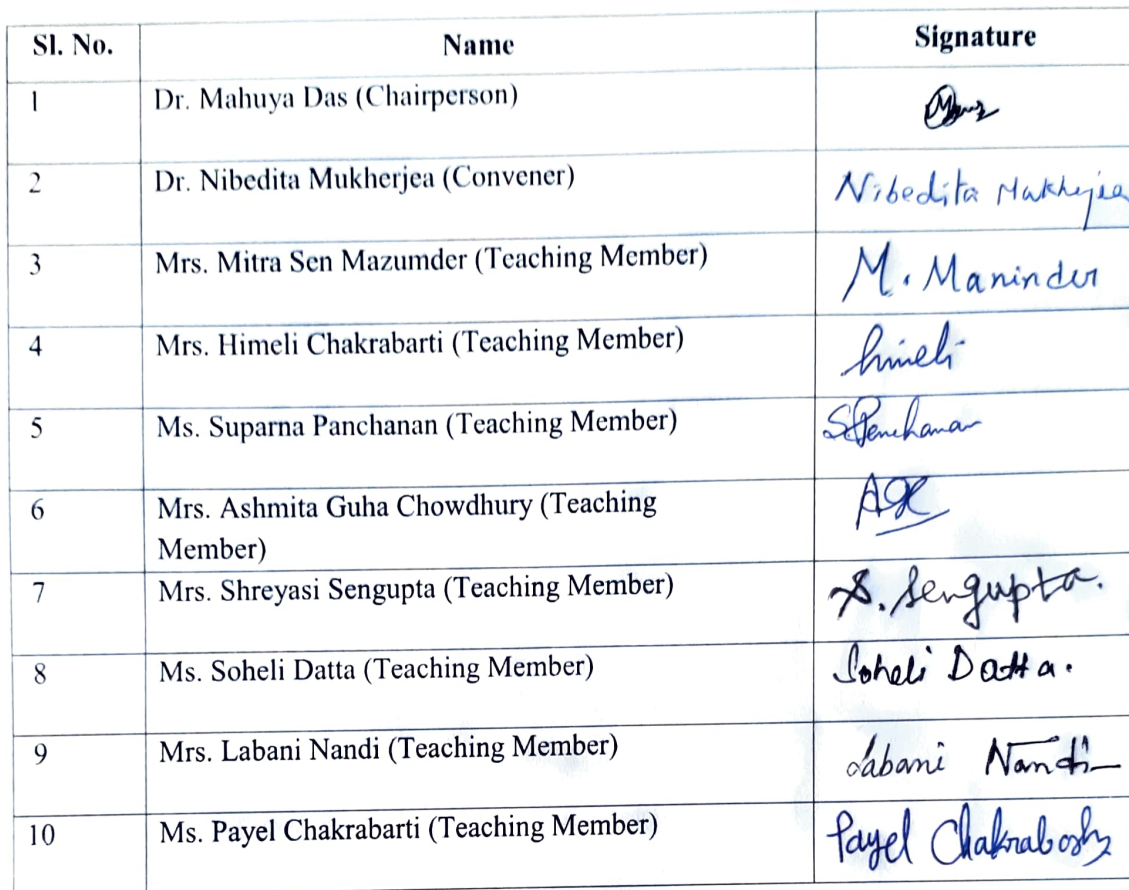 Sl. No. Name Signature
1 Dr. Mahuya Das (Chairperson)
2 Dr. Nibedita Mukherjea (Convener) Nibedita Mukherjea
3 Mrs. Mitra Sen Mazumder (Teaching Member) M.
4 Mrs. Himeli Chakrabarti (Teaching Member) himeli
5 Ms. Suparna Panchanan (Teaching Member) SPanchanan
6 Mrs. Ashmita Guha Chowdhury (Teaching
Member)
7 Mrs. Shreyasi Sengupta (Teaching Member) S. Sengupta.
8 Ms. Soheli Datta (Teaching Member) Soheli Datta.
9 Mrs. Labani Nandi (Teaching Member) Labani Nandi
10 Ms. Payel Chakrabarti (Teaching Member) Payel